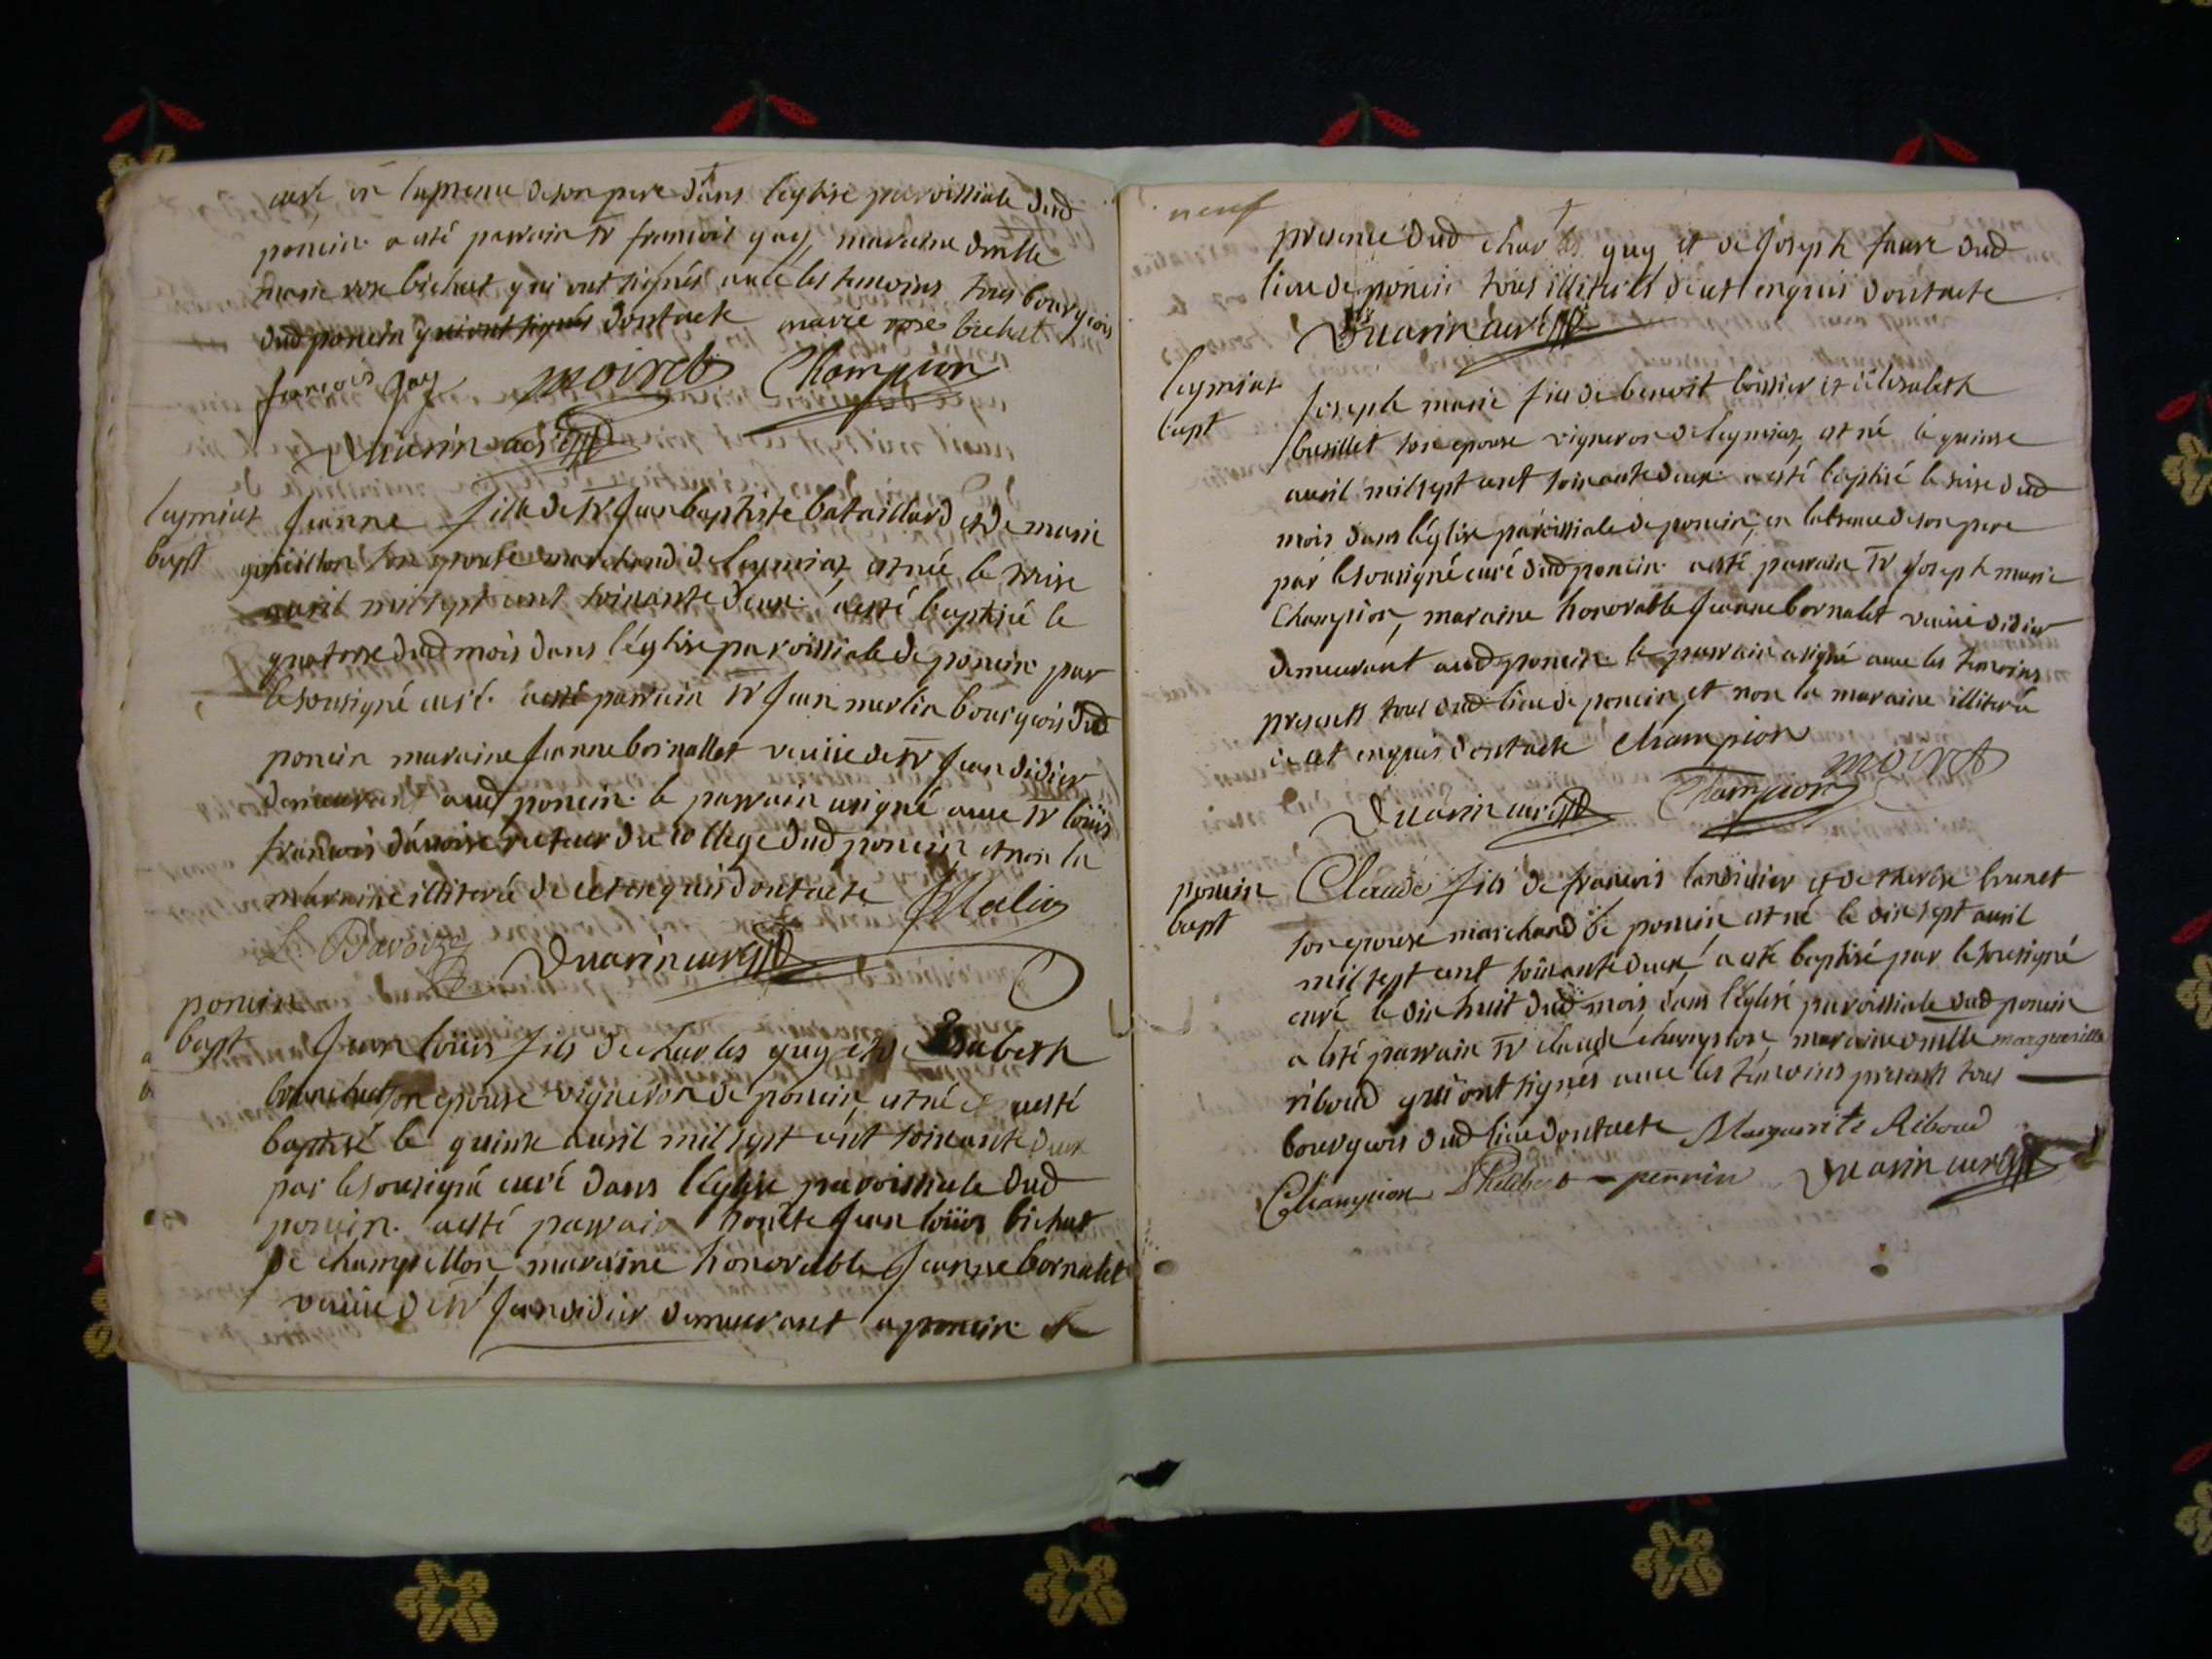 curé en la presence de son pere dans l'eglise parroissiale dud
poncin a esté parrain Sr francois guy, maraine dmlle
marie rose bichat qui ont signés avec les temoins tous bourgeois
dud poncin qui ont signés dont acte marie rose bichat
francois guy moiret Champion
Duarin curé
leymiat
bapt
Jeanne fille de Sr Jean baptiste bataillard et de marie
son epouse marchand de leymiat, est née le treise
auril mil sept cent soixante deux. a esté baptisé le
quatorse dud mois dans l'église parroissiale de poncin par
le sousigné curé. a esté parrain Sr Jean merlin bourgeois dud
poncin maraine Jeanne bornallet veuue de Sr Jean didier
demeurant aud poncin. le parrain a signé auec Sr loüis
francois dauoise recteur du college dud poncin, et non la
maraine illiterée de ce et enquis dont acte
L. Davoize Duarin curé
poncin
bapt
Jean loüis fils de charles guy et de Elisabeth
son epouse vigneron de poncin, est né et a esté
baptisé le quinse auril mil sept cent soixante deux
par le sousigné curé dans l'église parroissiale dud
poncin. a esté parrain honête Jean loüis bichat
de champeillon, maraine honorable Jeanne bornalet
veuue de Sr Jean didier demeurant a poncin en
neuf
presence dud charles guy et de Joseph faure dud
lieu de poncin tous illiterés de ce et enquis dont acte
Duarin curé
leymiat
bapt
Joseph marie fils de benoit boissier et d'elisabeth
busillet son epouse vigneron de leymiat, est né le quinse
auril mil sept cent soixante deux a esté baptisé le seise dud
mois dans l'église parroissiale de poncin, en la presence de son pere
par le sousigné curé dud poncin. a esté parrain Sr Joseph marie
Champion, maraine honorable Jeanne bornalet veuue didier
demeurant aud poncin le parrain a signé auec les temoins
presents tous dud lieu de poncin, et non la maraine illiterée
de ce et enquis dont acte Champion
moiret
Duarin curé Champion
poncin
bapt
Claude fils de francois landisier et de therese brunet
son epouse marchand de poncin est né le dix sept auril
mil sept cent soixante deux, a esté baptisé par le sousigné
curé le dix huit dud mois, dans l'église parroissiale dud poncin
a esté parrain Sr claude champion, maraine dmlle margueritte
riboud qui ont signés auec les temoins presents tous
bourgeois dud lieu dont acte Marguerite Riboud
Champion perrin Duarin curé